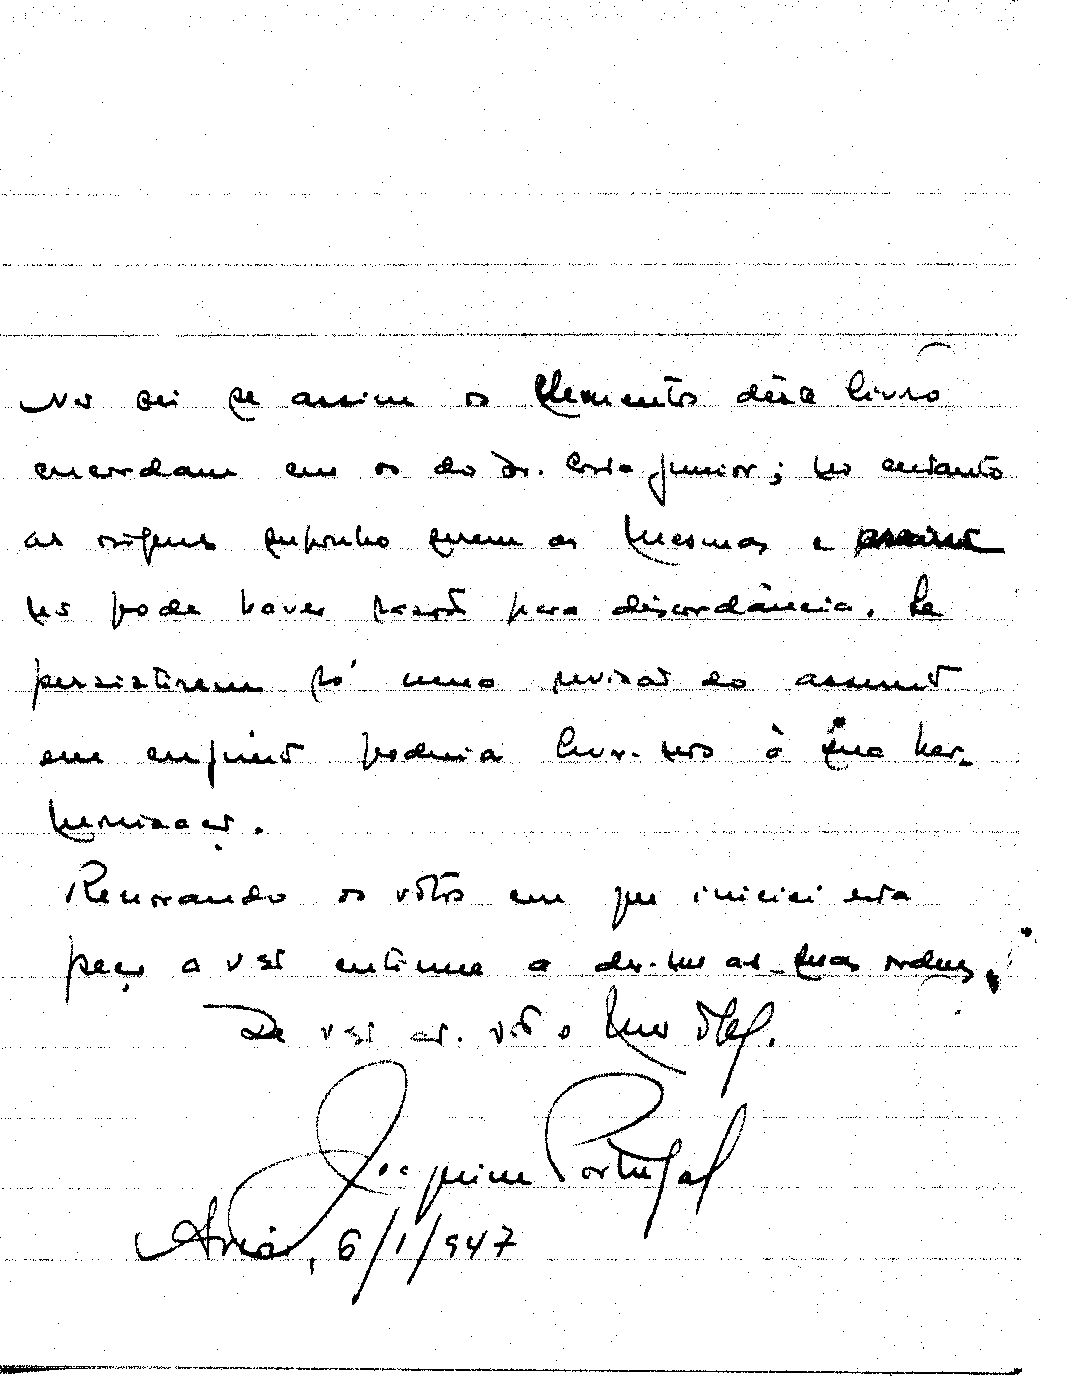 Não sei se assim os elementos dêste livro
concordam com os do Dr. Costa Junior; no entanto
as origens suponho serem as mesmas e
não pode haver razão para discordância. Se
persistirem só uma revisão do assunto
em conjunto poderia levar-nos à sua har-
monização.
Renovando os votos com que iniciei esta
peço a V. continue a dar-me as suas ordens.
De V. at.
Joaquim Portugal
6/1/947